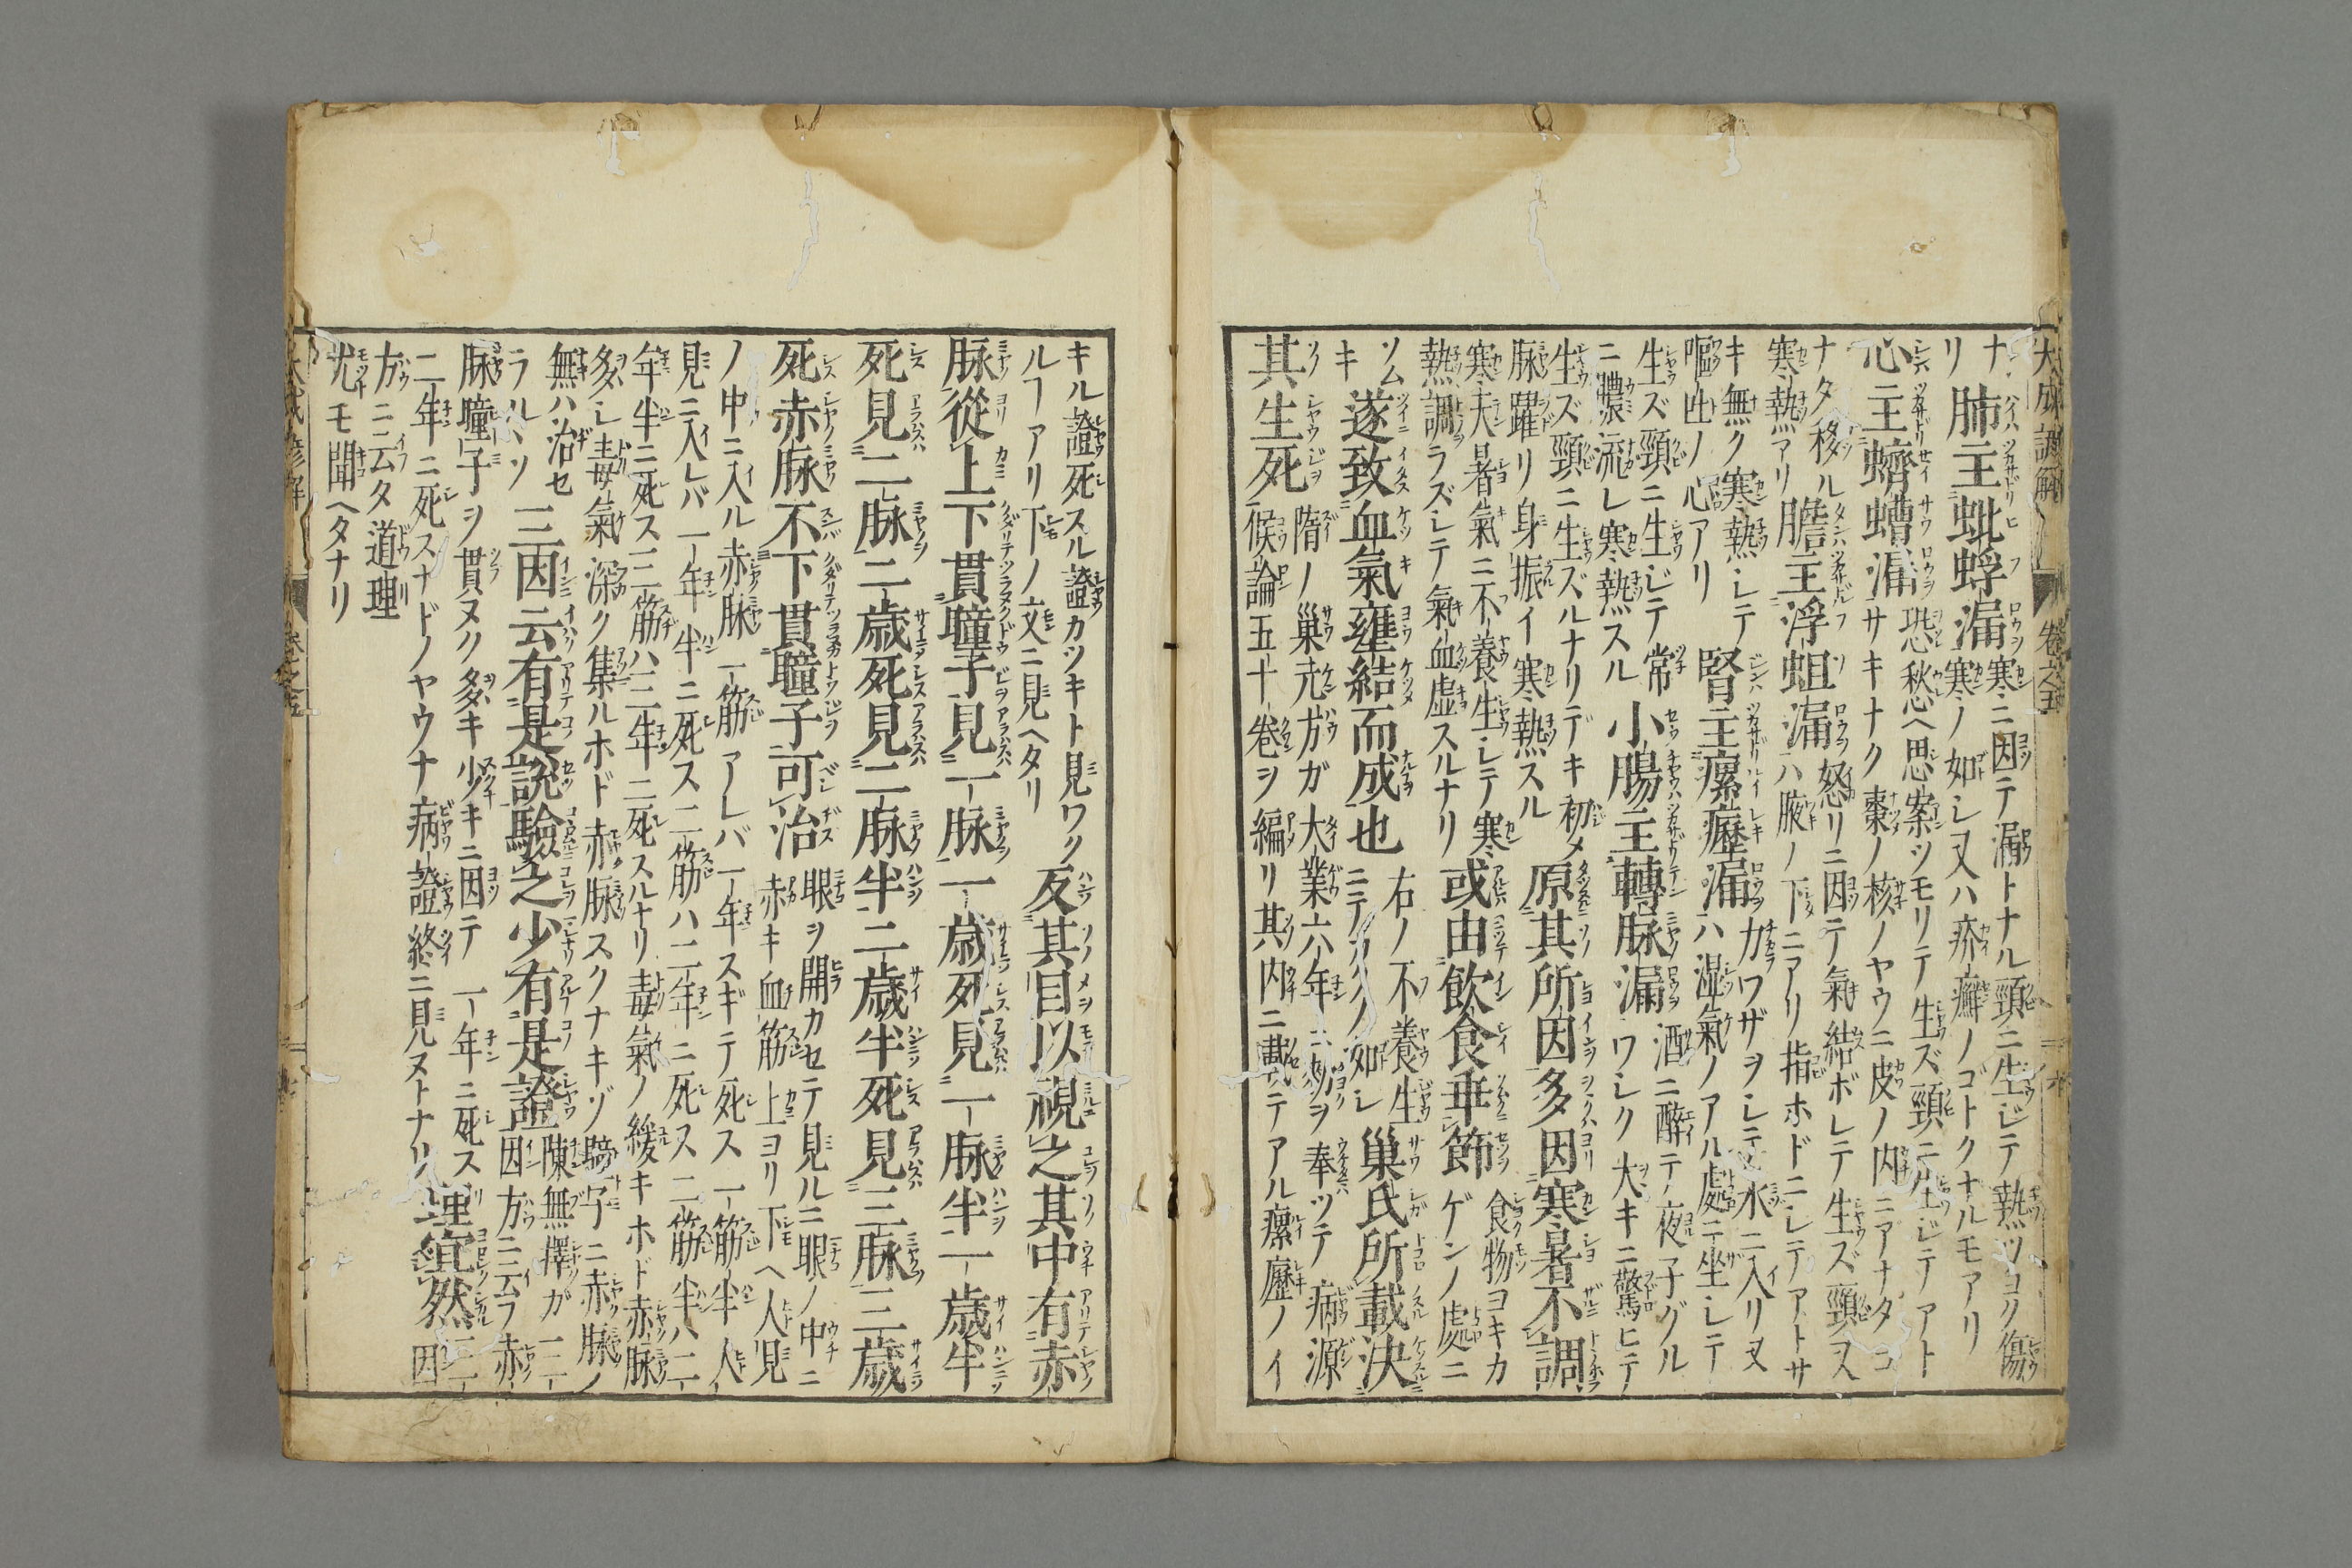 大成諺解 卷之五
ナ
リ 肺主蚍蜉漏 寒ニ因テ漏トナル頸ニ生ジテ熱ツヨク傷
寒ノ如シ又ハ疥癬ノゴトクナルモアリ
心主蠐螬漏 恐愁ヘ思案ツモリテ生ズ頸ニ生ジテアト
サキナク棗ノ核ノヤウニ皮ノ内ニアナタコ
ナタ移ル 膽主浮蛆漏 怒リニ因テ氣結ボレテ生ズ頸ヌ
寒熱アリ ハ腋ノ下ニアリ指ホドニシテアトサ
キ無ク寒熱シテ 腎主瘰癧漏 力ワザヲシテ水ニ入リヌ
嘔吐ノ心アリ ハ湿氣ノアル處ニ坐シテ
生ズ頸ニ生ジテ常 小腸主轉脉漏 酒ニ醉テ夜子グル
ニ膿流レ寒熱スル ワシク大キニ驚ヒテ
生ズ頸ニ生ズルナリデキ初メ 原其所因多因寒暑不調
脉躍リ身振イ寒熱スル
寒大暑氣ニ不養生シテ寒 或由飲食乖節 食物ヨキカ
熱調ラズシテ氣血虚スルナリ ゲンノ處ニ
ソム
キ 遂致血氣壅結而成也 右ノ不養生
ニテカクノ如シ 巢氏所載決
其生死 隋ノ巢元方ガ大業六年ニ勅ヲ奉ツテ病源
候論五十卷ヲ編リ其内ニ載テアル瘰癧ノイ
キル證死スル證カツキト見ワク 反其目以視之其中有赤
ルヿアリ下ノ文ニ見ヘタリ
脉從上下貫瞳子見一脉一歳死見一脉半一歳半
死見二脉二歳死見二脉半二歳半死見三脉三歳
死赤脉不下貫瞳子可治 眼ヲ開カセテ見ルニ眼ノ中ニ
赤キ血筋上ヨリ下ヘ人見
ノ中ニ入ル赤脉一筋アレバ一年スギテ死ス一筋半人
見ニ入レバ一年半ニ死ス二筋ハ二年ニ死ス二筋半ハ二
年半ニ死ス三筋ハ三年ニ死スルナリ毒氣ノ緩キホド赤脉
多シ毒氣深ク集ルホド赤脉スクナキゾ瞳子ニ赤脉ノ
無ハ治セ
ラルヽソ 三因云有是説驗之少有是證 陳無擇ガ三
因方ニ云フ赤
脉瞳子ヲ貫ヌク多キ少キニ因テ一年ニ死ス
二年ニ死スナドノヤウナ病證終ニ見ヌトナリ 理宜然 三
因
方ニ云タ道理
尤モ聞ヘタナリ
大成諺解 卷之五